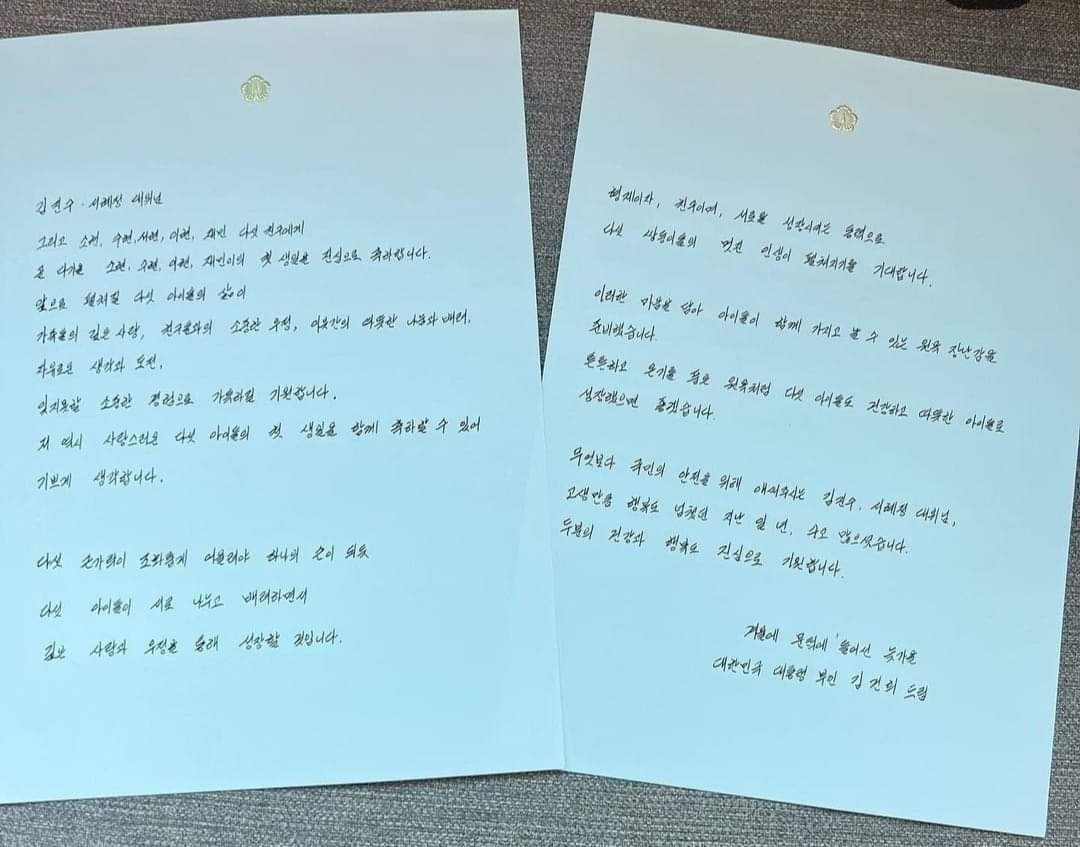 김진수·서혜정 대위님
그리고 소현, 수현, 서현, 이현, 재민 다섯 친구에게
곧 다가올 소현, 수현, 이현, 재민이의 첫 생일을 진심으로 축하합니다.
앞으로 펼쳐질 다섯 아이들의 삶이
가족들의 깊은 사랑, 친구들과의 소중한 우정, 이웃간의 따뜻한 나눔과 배려,
자유로운 생각과 도전,
잊지못할 소중한 경험으로 가득하길 기원합니다.
저 역시 사랑스러운 다섯 아이들의 첫 생일을 함께 축하할 수 있어
기쁘게 생각합니다.
다섯 손가락이 조화롭게 어울려야 하나의 손이 되듯
다섯 아이들이 서로 나누고 배려하면서
깊은 사랑과 우정을 통해 성장할 것입니다.
형제이자, 친구이며, 서로를 성장시키는 동력으로
다섯 쌍둥이들의 멋진 인생이 펼쳐지기를 기대합니다.
이러한 마음을 담아 아이들이 함께 가지고 볼 수 있는 원목 장난감을
준비했습니다.
튼튼하고 온기를 품은 원목처럼 다섯 아이들도 건강하고 따뜻한 아이들로
성장했으면 좋겠습니다.
무엇보다 국민의 안전을 위해 애써주시는 김진수, 서혜정 대위님,
고생만큼 행복도 넘쳤던 지난 일 년, 수고 많으셨습니다.
두분의 건강과 행복도 진심으로 기원합니다.
겨울에 문턱에 들어선 늦가을
대한민국 대통령 부인 김건희 드림